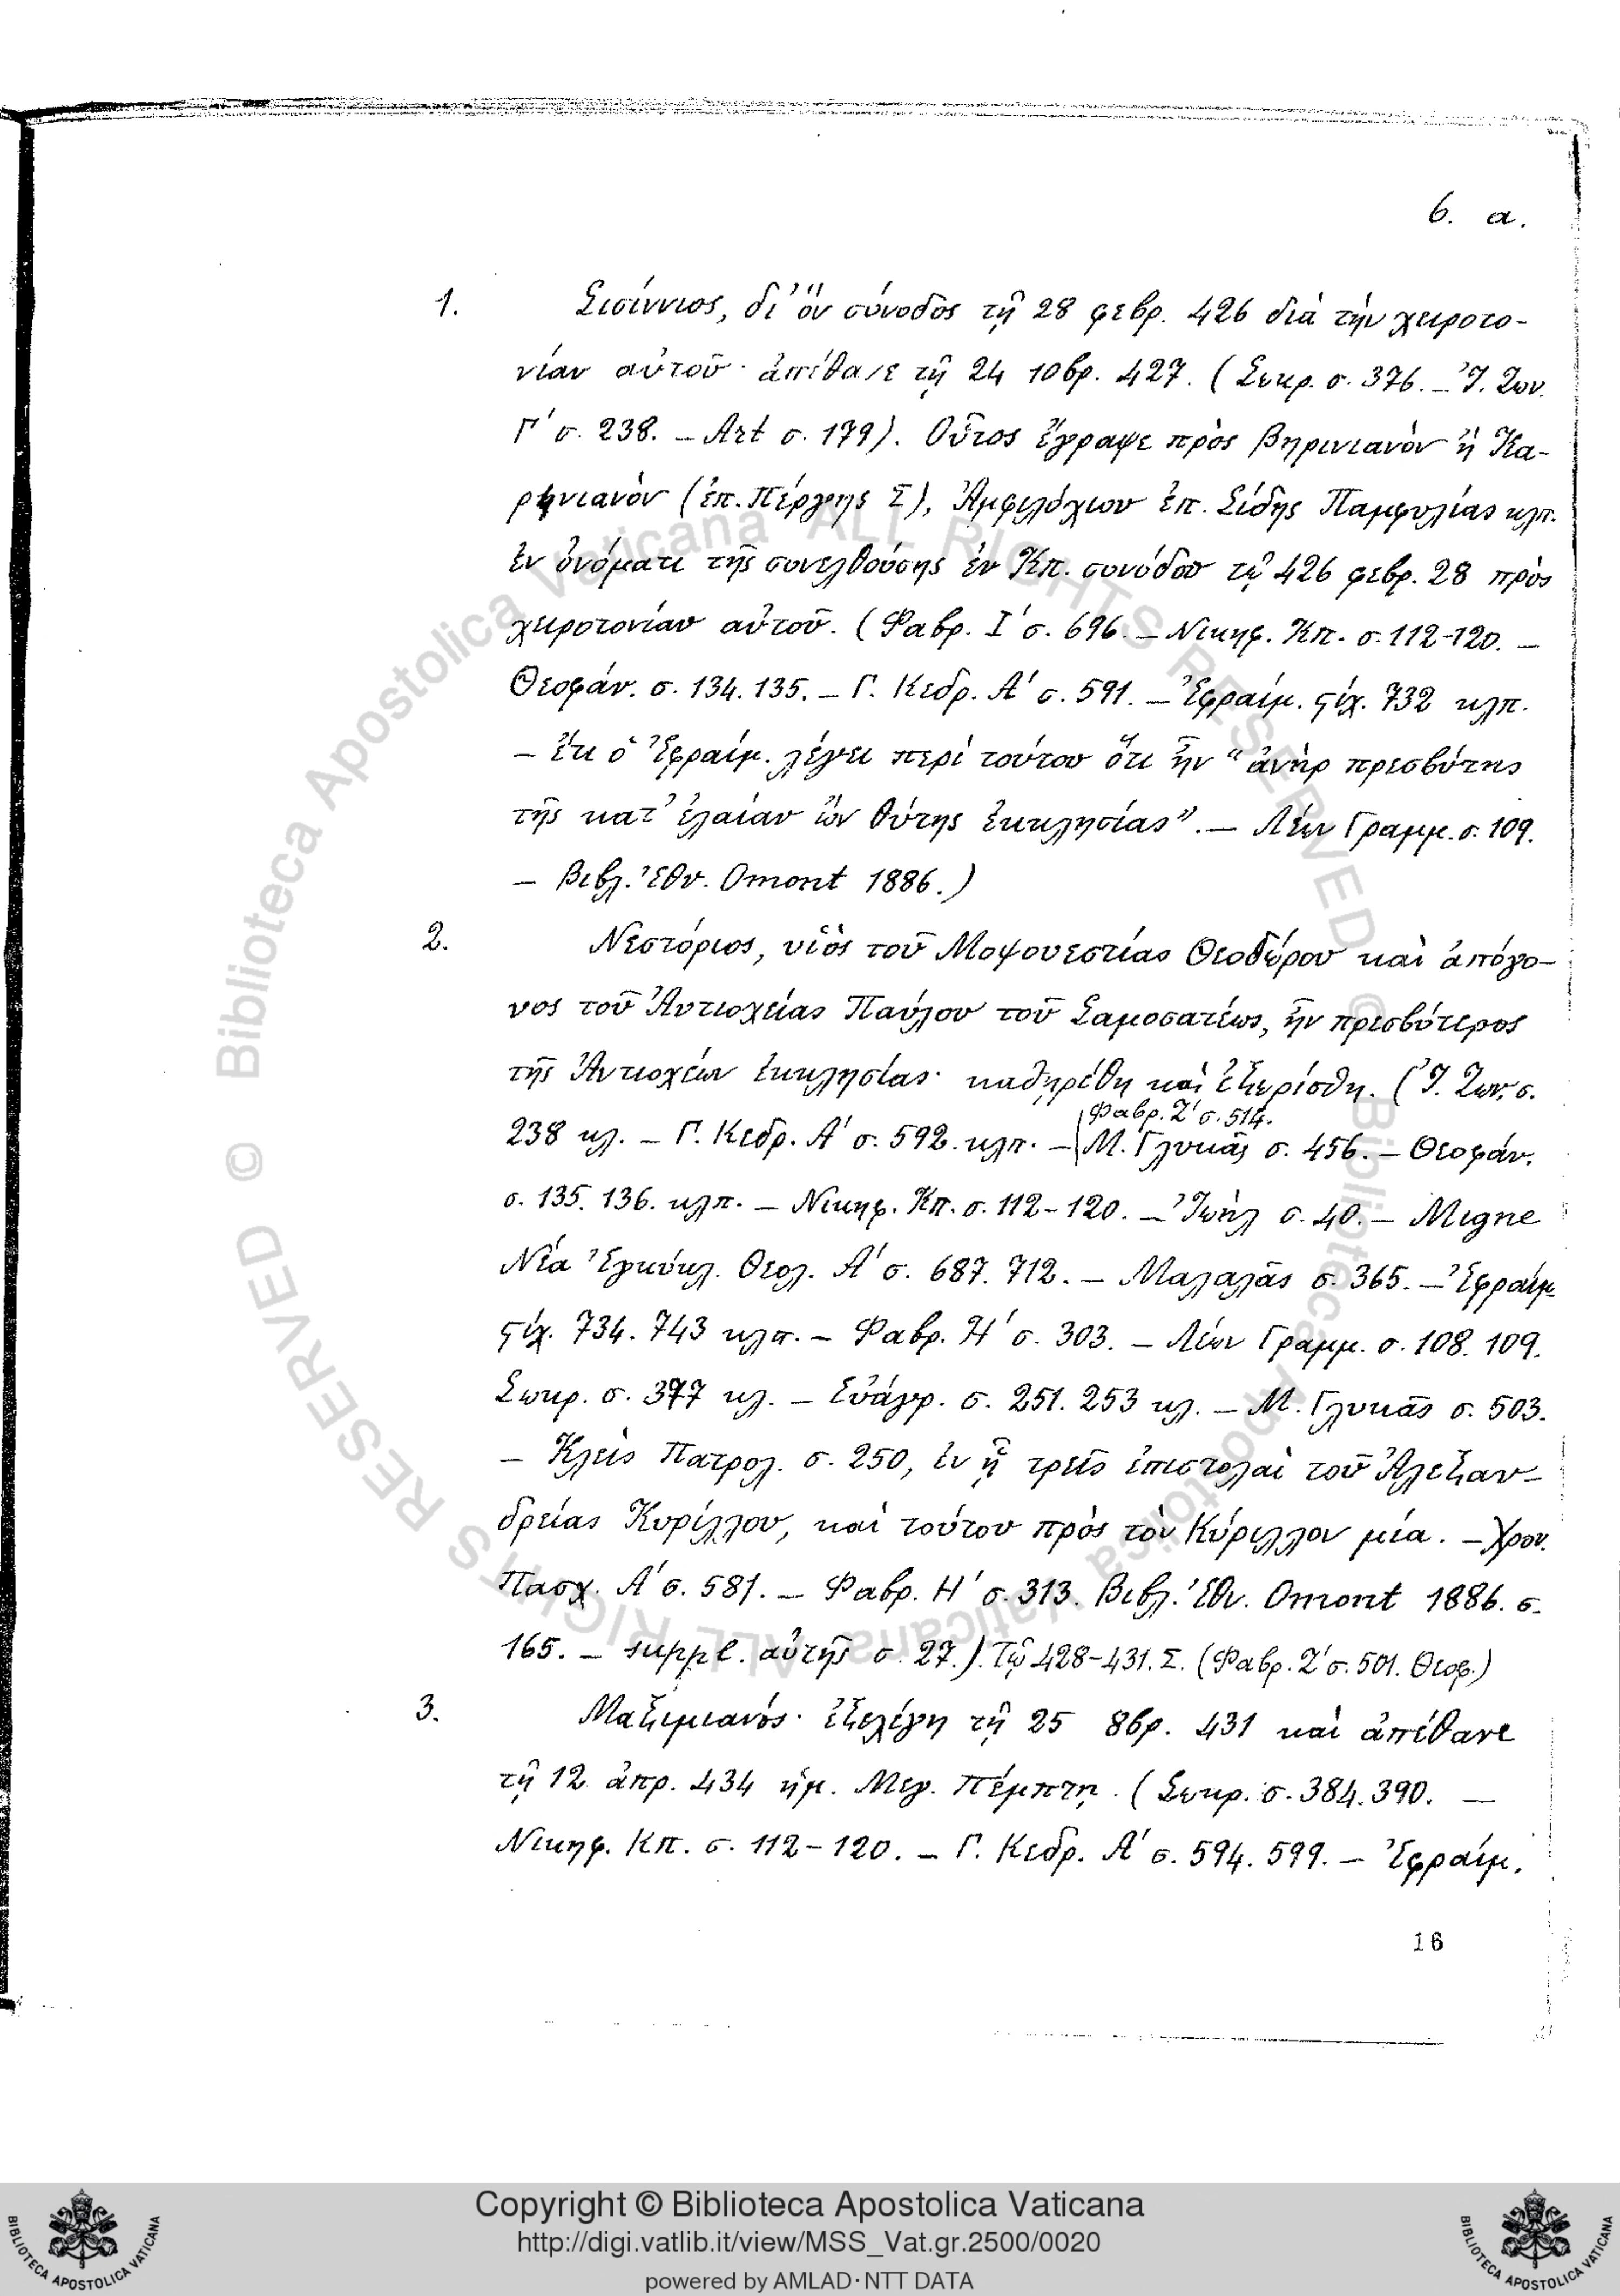 6. α.
1. Σισίννιος, δι' ὃν σύνοδος τῇ 28 φεβρ. 426 διὰ τὴν χειροτο-
νίαν αὐτοῦ· ἀπέθανε τῇ 24 10βρ. 427. (Σωκρ. σ. 376. – Ἰ. Ζων.
Γ' σ. 238. – Art σ. 179). Οὗτος ἔγραψε πρὸς Βηρινιανὸν ἢ Κα-
ρηνιανὸν (ἐπ. Πέργης Σ), Ἀμφιλόχιον ἐπ. Σίδης Παμφυλίας κλπ.
ἐν ὀνόματι τῆς συνελθούσης ἐν Κπ. συνόδου τῷ 426 φεβρ. 28 πρὸς
χειροτονίαν αὐτοῦ. (Φαβρ. Ι' σ. 696. – Νικηφ. Κπ. σ. 112-120. –
Θεοφάν. σ. 134. 135. – Γ. Κεδρ. Α' σ. 591. – Ἐφραίμ. ϛίχ. 732 κλπ.
– ἔτι ὁ Ἐφραίμ. λέγει περὶ τούτου ὅτι ἦν “ἀνὴρ πρεσβύτης
τῆς κατ' ἐλαίαν ὢν θύτης ἐκκλησίας”. – Λέων Γραμμ. σ. 109.
– Βιβλ. Ἐθν. Omont 1886.)
2. Νεστόριος, υἱὸς τοῦ Μοψουεστίας Θεοδώρου καὶ ἀπόγο-
νος τοῦ Ἀντιοχείας Παύλου τοῦ Σαμοσατέως, ἦν πρεσβύτερος
τῆς Ἀντιοχέων ἐκκλησίας· καθῃρέθη καὶ ἐξωρίσθη. (Ἰ. Ζων. σ.
Φαβρ. Ζ' σ. 514.
238 κλ. – Γ. Κεδρ. Α' σ. 592. κλπ. – Μ. Γλυκᾶς σ. 456. – Θεοφάν.
σ. 135. 136. κλπ. – Νικηφ. Κπ. σ. 112-120. – Ἰωὴλ σ. 40. – Migne
Νέα Ἐγκύκλ. Θεολ. Α' σ. 687. 712. – Μαλαλᾶς σ. 365. – Ἐφραίμ
ϛίχ. 734. 743 κλπ. – Φαβρ. Η' σ. 303. – Λέων Γραμμ. σ. 108. 109.
Σωκρ. σ. 377 κλ. – Εὐάγρ. σ. 251. 253 κλ. – Μ. Γλυκᾶς σ. 503.
– Κλεὶς Πατρολ. σ. 250, ἐν ᾗ τρεῖς ἐπιστολαὶ τοῦ Ἀλεξαν-
δρείας Κυρίλλου, καὶ τούτου πρὸς τὸν Κύριλλον μία. – Χρον.
Πασχ. Α' σ. 581. – Φαβρ. Η' σ. 313. Βιβλ. Ἐθν. Omont 1886. σ.
165. – suppl. αὐτῆς σ. 27.). Τῷ 428-431. Σ. (Φαβρ. Ζ' σ. 501. Θεοφ.)
3. Μαξιμιανός· ἐξελέγη τῇ 25 8βρ. 431 καὶ ἀπέθανε
τῇ 12 ἀπρ. 434 ἡμ. Μεγ. Πέμπτῃ. (Σωκρ. σ. 384. 390. –
Νικηφ. Κπ. σ. 112-120. – Γ. Κεδρ. Α' σ. 594. 599. – Ἐφραίμ.
16
© Biblioteca Apostolica Vaticana ALL RIGHTS RESERVED © Biblioteca Apostolica Vaticana ALL RIGHTS RESERVED
Copyright © Biblioteca Apostolica Vaticana
http://digi.vatlib.it/view/MSS_Vat.gr.2500/0020
powered by AMLAD·NTT DATA
BIBLIOTECA APOSTOLICA VATICANA
BIBLIOTECA APOSTOLICA VATICANA